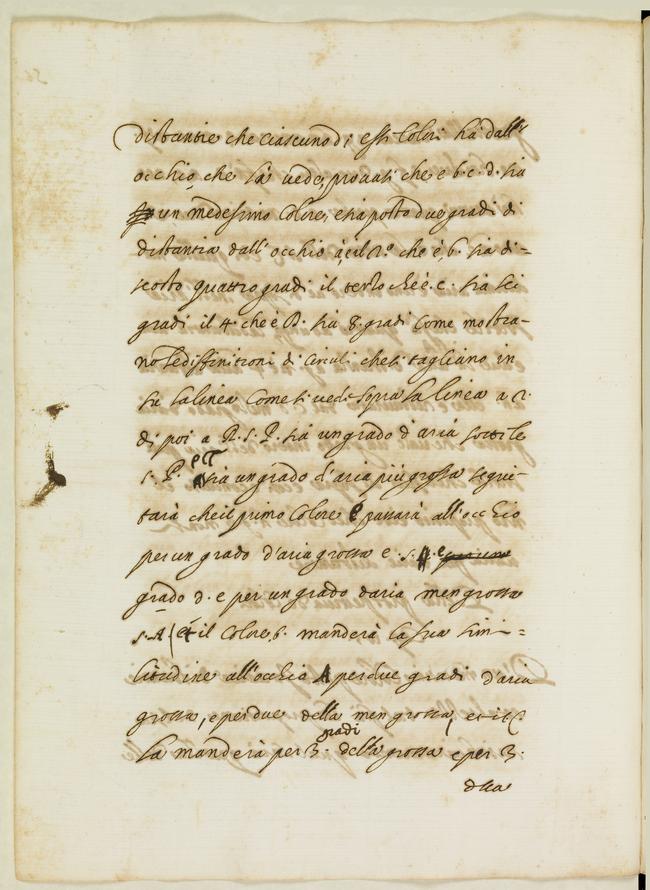 distantie che ciascuno di essi Colori ha dall'
occhio che la vede, provasi che e b. c. d. sia
un medesimo Colore, e sia posto due gradi di
distantia dall'occhio a, e il 2.º che è, b. sia di=
scosto quattro gradi il terzo ch'è. c. sia sei
gradi il 4. che è D. sia 8. gradi Come mostra-
no le diffinitioni di Circuli che si tagliano in
su la linea Come si vede sopra la linea a r.
di poi a R. S. P. sia un grado d'aria sottile
S. P. sia un grado d'aria più grossa segui-
tarà che il primo Colore passarà all'occhio
per un grado d'aria grossa e. S.
grado d. e per un grado daria men grossa
S. A. et il Colore, b. manderà la sua simi=
litudine all'occhio A per due gradi d'aria
grossa, e per due della men grossa, et il C
la manderà per 3. gradi della grossa e per 3.
della